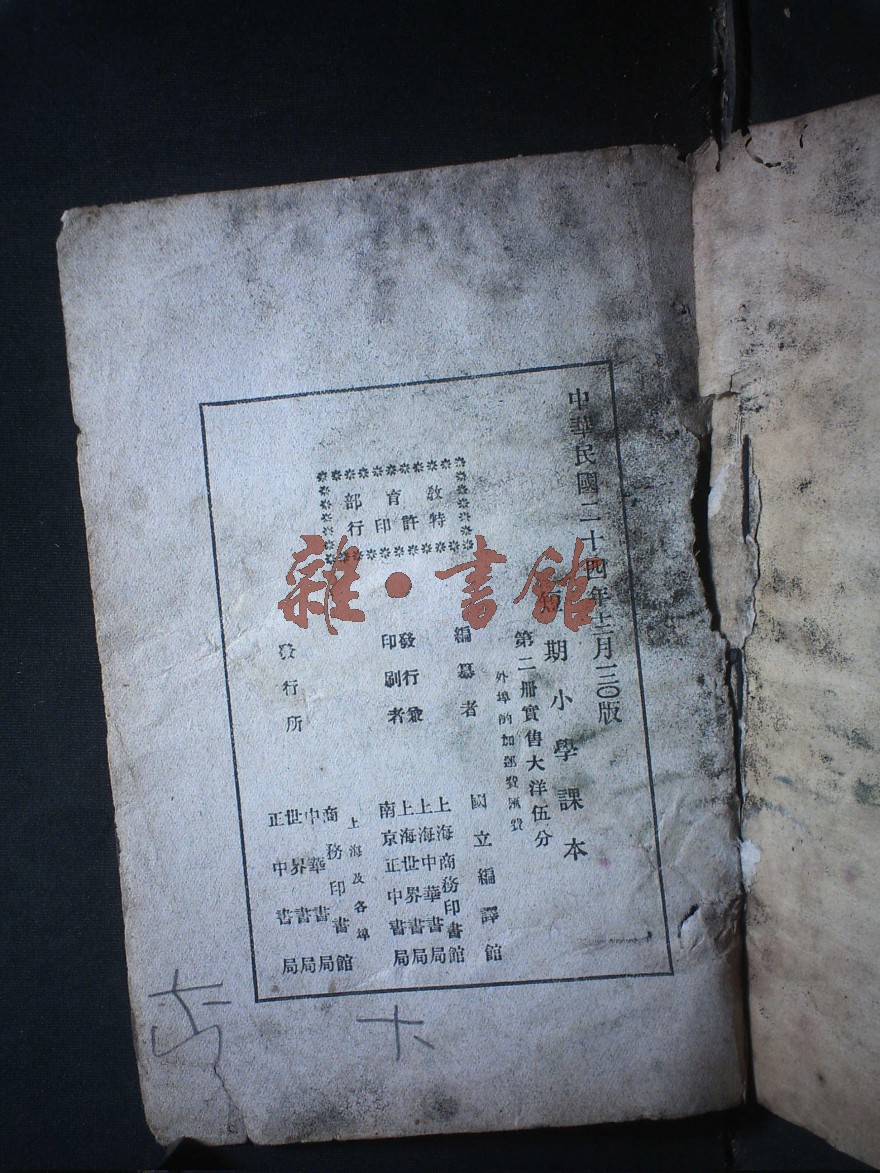 中華民國二十四年十二月一三〇版
短期小學課本
第二册實售大洋伍分
外埠酌加運費滙費
教育部
特許印行
編纂者
國立編譯館
發行兼
印刷者
上海商務印書館
上海中華書局
上海世界書局
南京正中書局
發行所
上海及各埠
商務印書館
中華書局
世界書局
正中書局
雜·書館